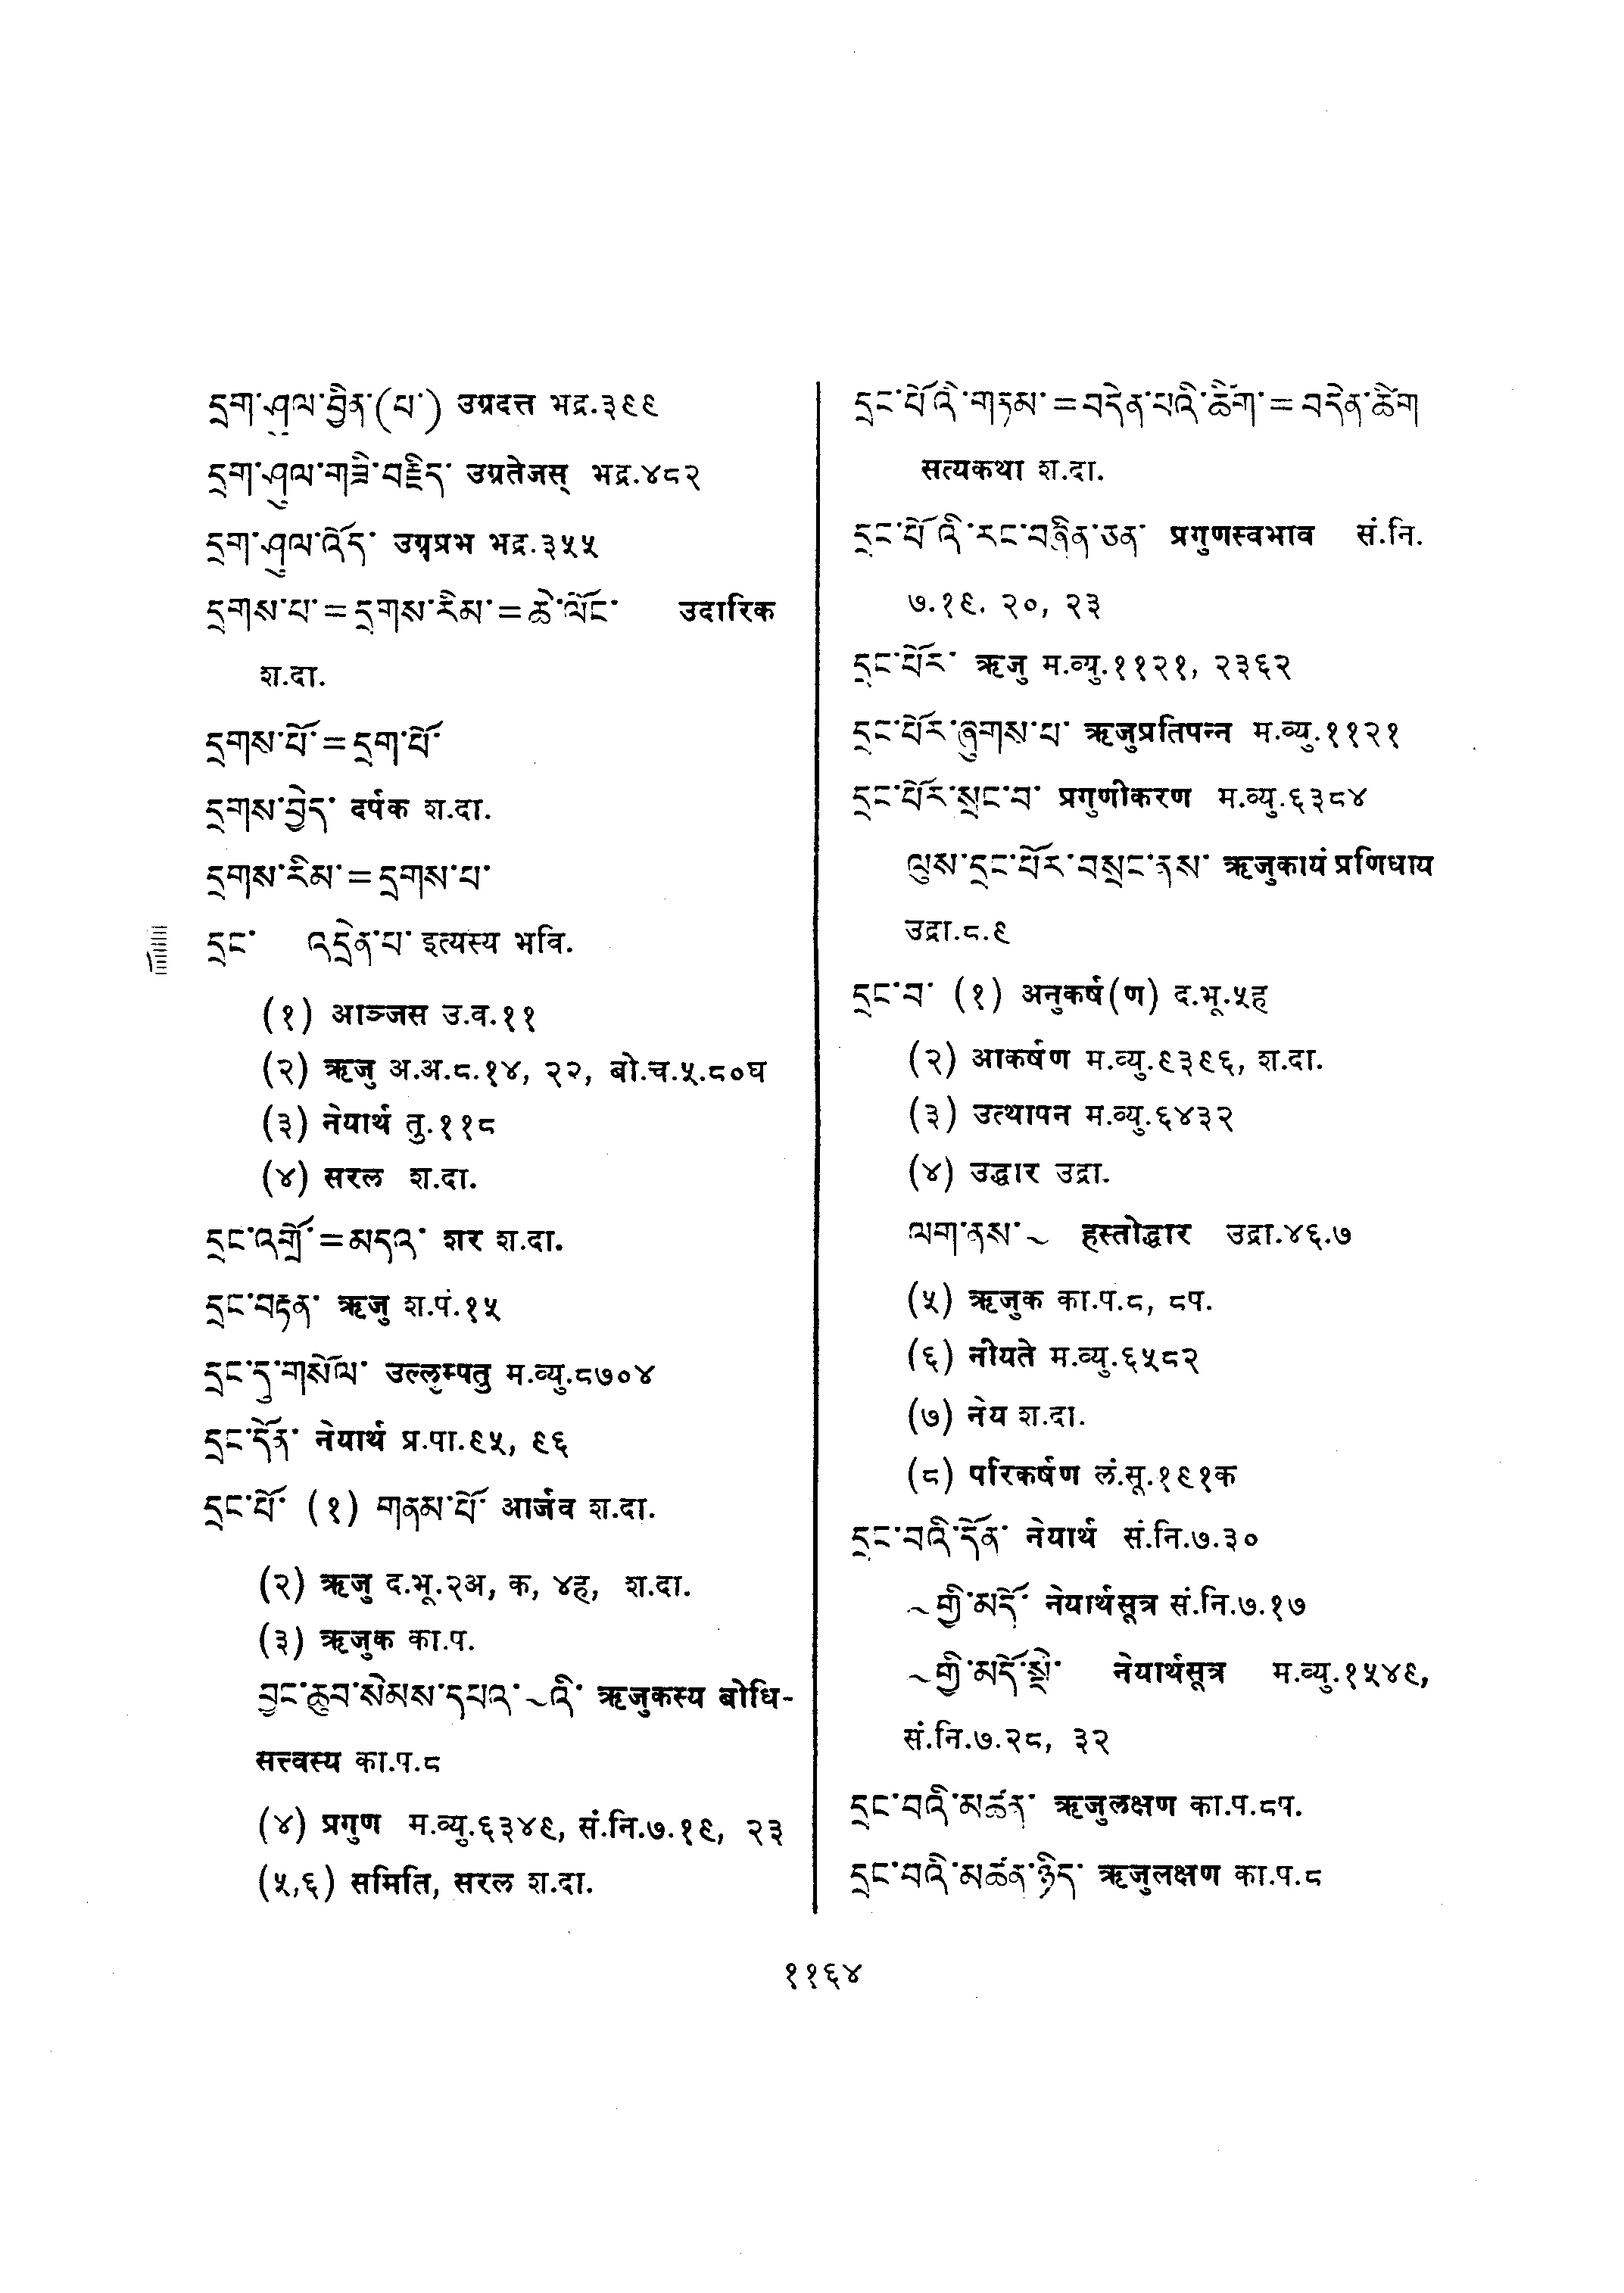 དྲག་ཤུལ་བྱིན་(པ་) उग्रदत्त भद्र.३९९
དྲག་ཤུལ་གཟི་བརྗིད་ उग्रतेजस् भद्र.४८२
དྲག་ཤུལ་འོད་ उग्रप्रभ भद्र.३५५
དྲགས་པ་=དྲགས་རིམ་=ཆེ་ལོང་ उदारिक
श.दा.
དྲགས་པོ་=དྲག་པོ་
དྲགས་བྱེད་ दर्पक श.दा.
དྲགས་རིམ་=དྲགས་པ་
དྲང་ འདྲེན་པ་ इत्यस्य भवि.
(१) आञ्जस उ.व.११
(२) ऋजु अ.अ.८.१४, २२, बो.च.५.८०घ
(३) नेयार्थ तु.११८
(४) सरल श.दा.
དྲང་འགྲོ་=མདའ་ शर श.दा.
དྲང་བརྟན་ ऋजु श.पं.१५
དྲང་དུ་གསོལ་ उल्लुम्पतु म.व्यु.८७०४
དྲང་དོན་ नेयार्थ प्र.पा.९५, ९६
དྲང་པོ་ (१) གནམ་པོ་ आर्जव श.दा.
(२) ऋजु द.भू.२अ, क, ४ह, श.दा.
(३) ऋजुक का.प.
བྱང་ཆུབ་སེམས་དཔའ་~འི་ ऋजुकस्य बोधि-
सत्त्वस्य का.प.८
(४) प्रगुण म.व्यु.६३४९, सं.नि.७.१९, २३
(५,६) समिति, सरल श.दा.
དྲང་པོའི་གཏམ་=བདེན་པའི་ཚིག་=བདེན་ཚིག
सत्यकथा श.दा.
དྲང་པོའི་རང་བཞིན་ཅན་ प्रगुणस्वभाव सं.नि.
७.१९. २०, २३
དྲང་པོར་ ऋजु म.व्यु.११२१, २३६२
དྲང་པོར་ཞུགས་པ་ ऋजुप्रतिपन्न म.व्यु.११२१
དྲང་པོར་སྲང་བ་ प्रगुणीकरण म.व्यु.६३८४
ལུས་དྲང་པོར་བསྲང་ནས་ ऋजुकायं प्रणिधाय
उद्रा.८.९
དྲང་བ་ (१) अनुकर्ष(ण) द.भू.५ह
(२) आकर्षण म.व्यु.९३९६, श.दा.
(३) उत्थापन म.व्यु.६४३२
(४) उद्धार उद्रा.
ལག་ནས་~ हस्तोद्धार उद्रा.४६.७
(५) ऋजुक का.प.८, ८प.
(६) नीयते म.व्यु.६५८२
(७) नेय श.दा.
(८) परिकर्षण लं.सू.१९१क
དྲང་བའི་དོན་ नेयार्थ सं.नि.७.३०
~གྱི་མདོ་ नेयार्थसूत्र सं.नि.७.१७
~གྱི་མདོ་སྡེ་ नेयार्थसूत्र म.व्यु.१५४९,
सं.नि.७.२८, ३२
དྲང་བའི་མཚན་ ऋजुलक्षण का.प.८प.
དྲང་བའི་མཚན་ཉིད་ ऋजुलक्षण का.प.८
११६४